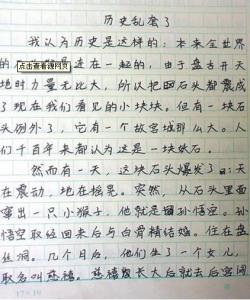 历史乱套了
我认为历史是这样的：本来全世界
的 是连在一起的，由于盘古开天
点击查看源网页
地时力量无比大，所以把 石头都震成
了现在我们看见的小块块，但有一块石
头例外了，它有一个故宫城那么大。人
们千百年来都认为这是一块炕石..
然而有一天，这块石头爆发了：天
在震动，地在摇晃。突然，从石头里面
窜出一只小猴子，他就是 孙悟空。孙
悟空取经回来后与白骨精结婚。住在盘
丝洞。几个月后，他们生了一个女儿，
取名叫慈禧。慈禧 长大后就去后宫闯